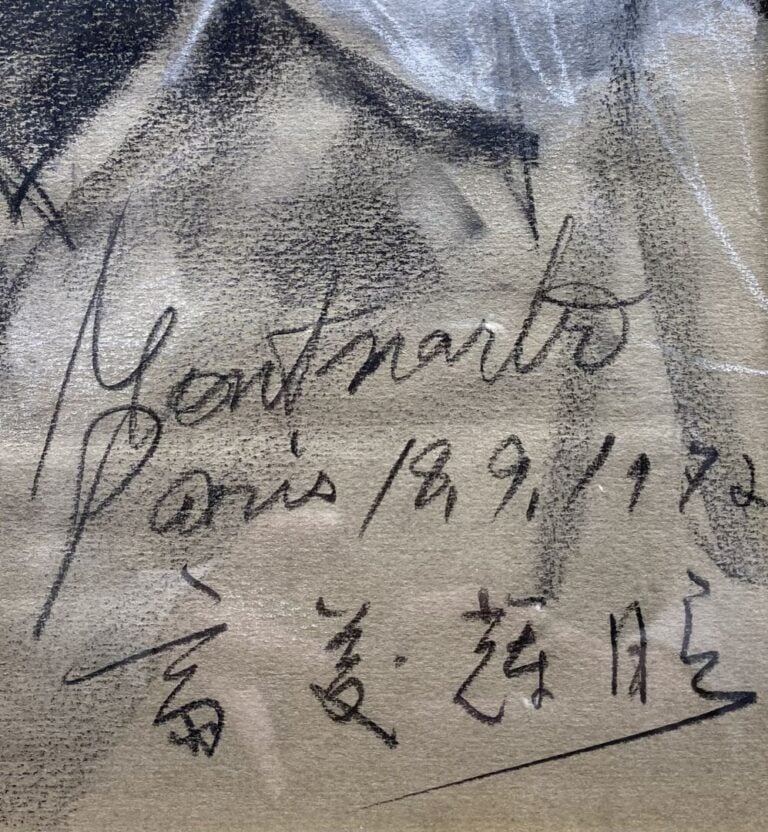 Montmartre
Paris 18, 9, 1972
高 美 輝